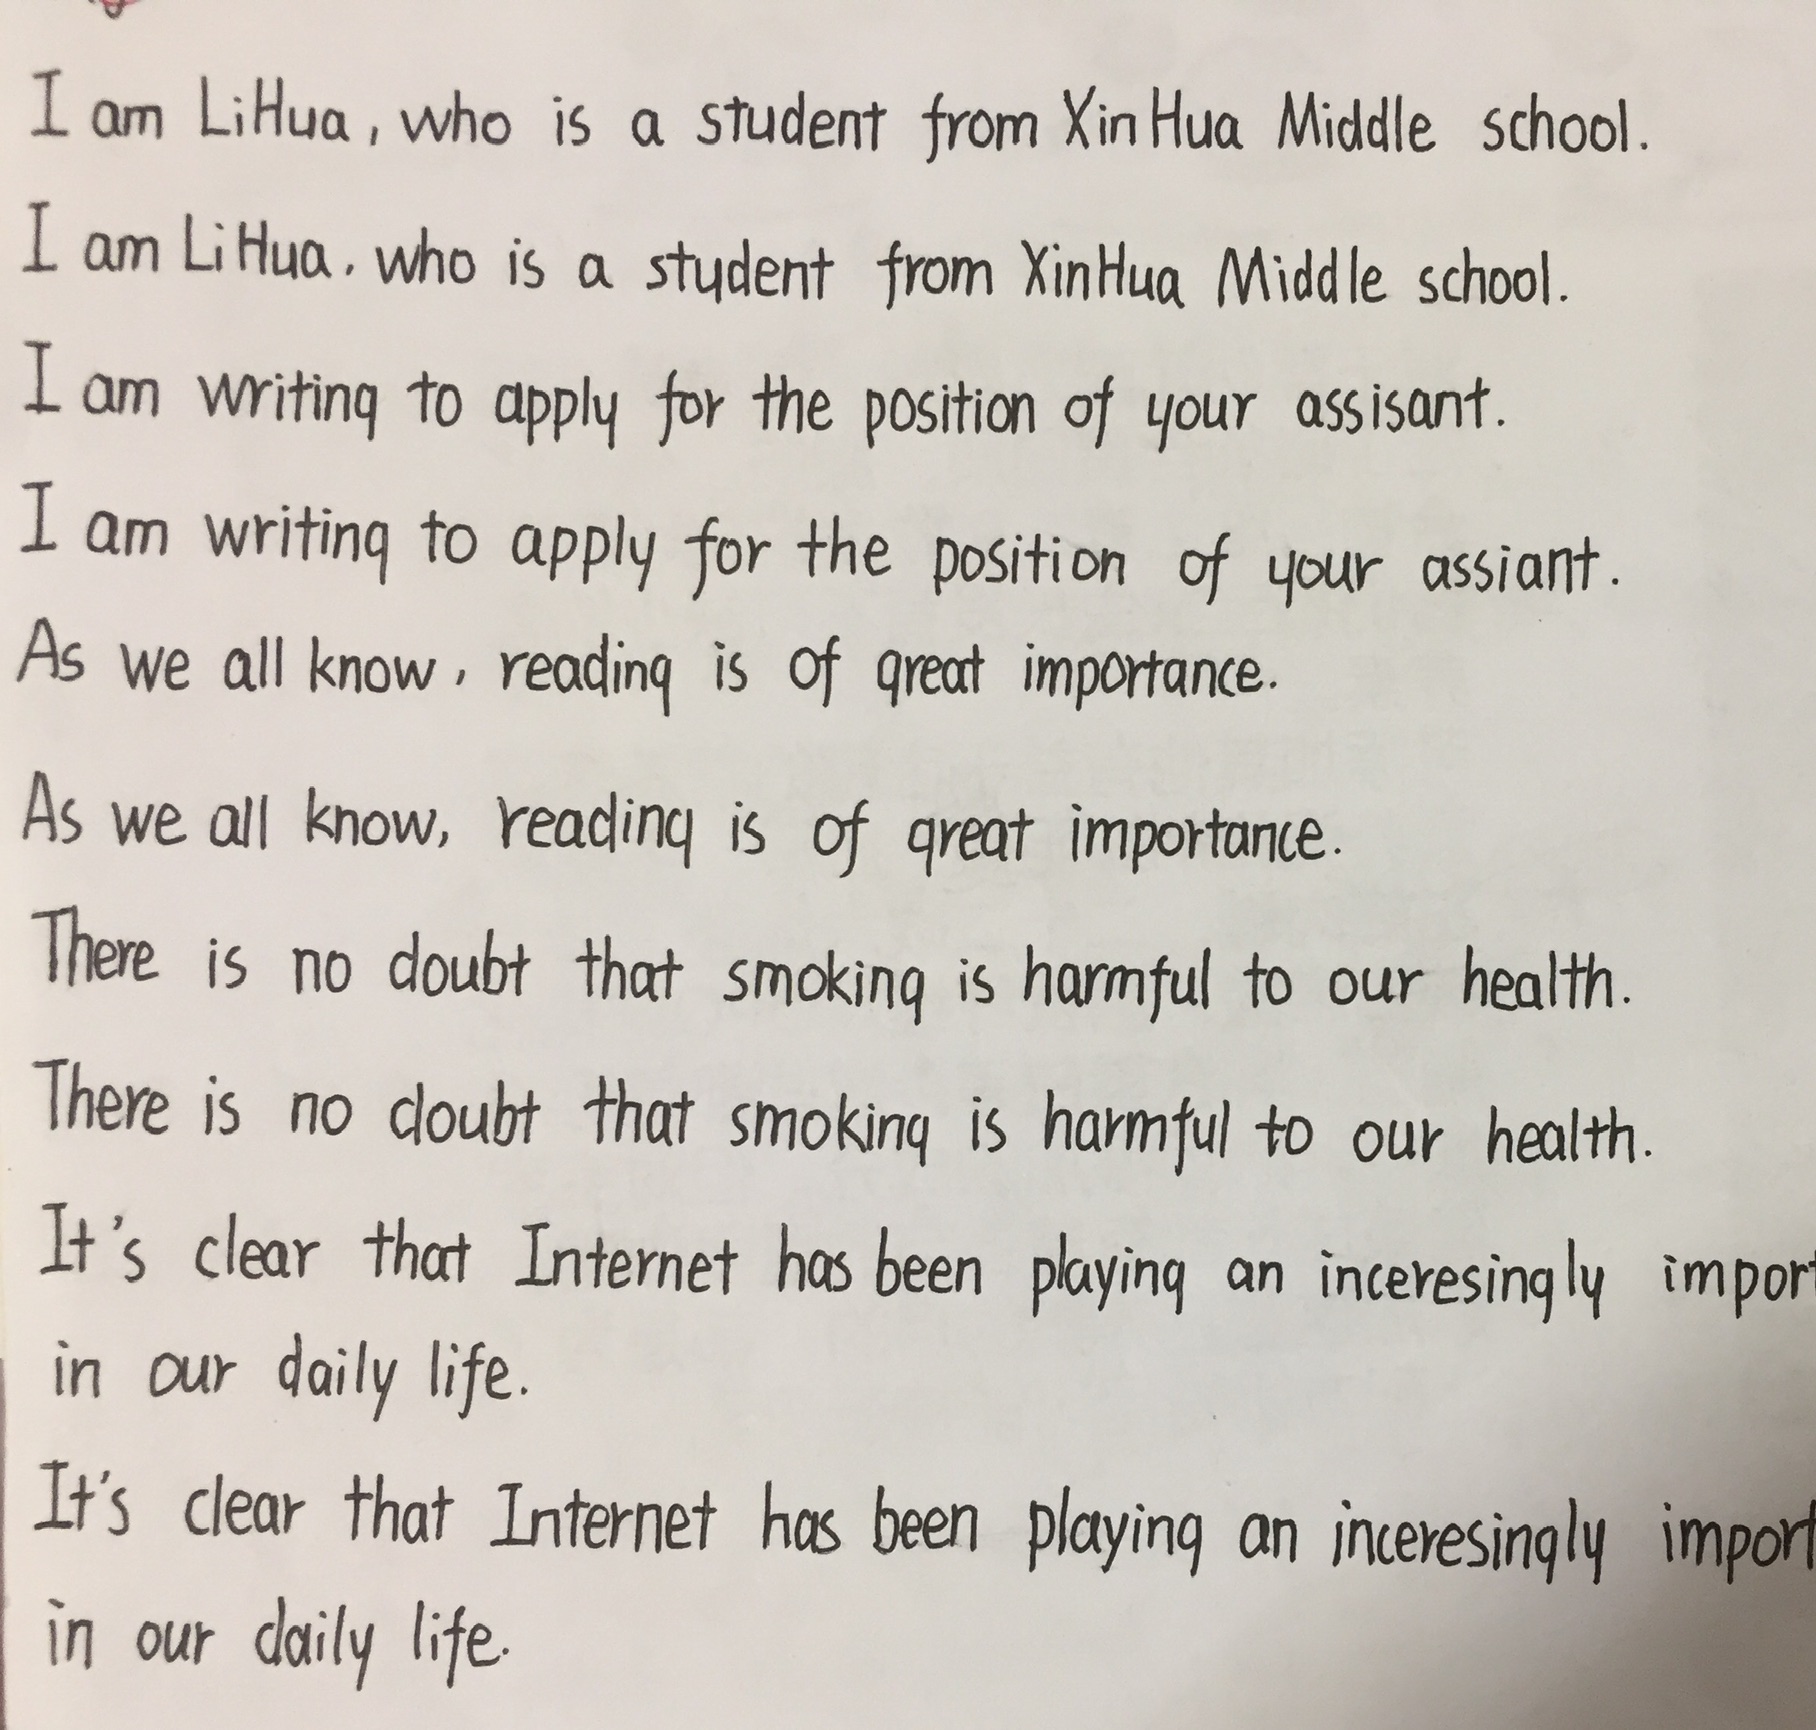 I am LiHua, who is a student from XinHua Middle school.
I am LiHua, who is a student from XinHua Middle school.
I am writing to apply for the position of your assisant.
I am writing to apply for the position of your assiant.
As we all know, reading is of great importance.
As we all know, reading is of great importance.
There is no doubt that smoking is harmful to our health.
There is no doubt that smoking is harmful to our health.
It's clear that Internet has been playing an inceresingly import
in our daily life.
It's clear that Internet has been playing an inceresingly import
in our daily life.